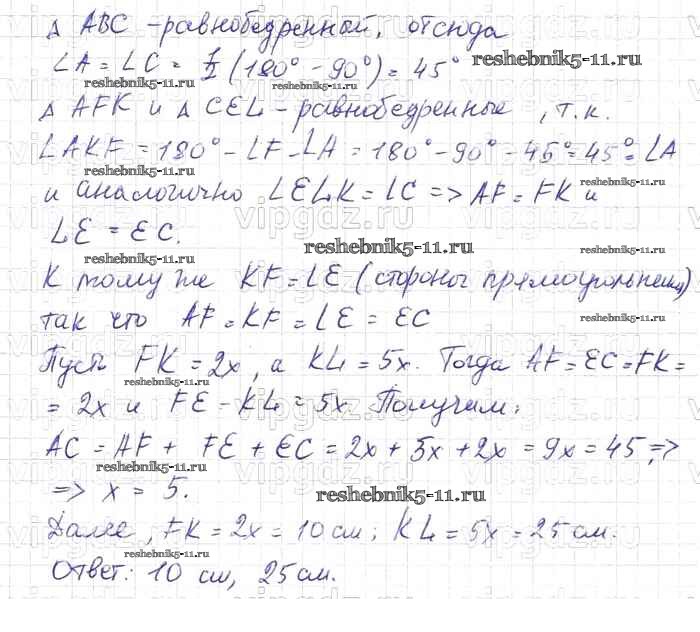 Δ ABC - равнобедренный, отсюда
∠A = ∠C = 1/2 (180° - 90°) = 45°
reshebnik5-11.ru
reshebnik5-11.ru
Δ AFK и Δ CEL - равнобедренные, т.к.
∠AKF = 180° - ∠F - ∠A = 180° - 90° - 45° = 45° = ∠A
reshebnik5-11.ru
и аналогично ∠ELK = ∠C => AF = FK и
LE = EC.
reshebnik5-11.ru
reshebnik5-11.ru
К тому же KF = LE (стороны прямоугольника)
так что AF = KF = LE = EC
reshebnik5-11.ru
Пусть FK = 2x, а KL = 5x. Тогда AF = EC = FK =
reshebnik5-11.ru
= 2x и FE - KL = 5x. Получим:
AC = AF + FE + EC = 2x + 5x + 2x = 9x = 45 =>
reshebnik5-11.ru
=> x = 5.
reshebnik5-11.ru
Далее, FK = 2x = 10 см; KL = 5x = 25 см.
reshebnik5-11.ru
Ответ: 10 см, 25 см.